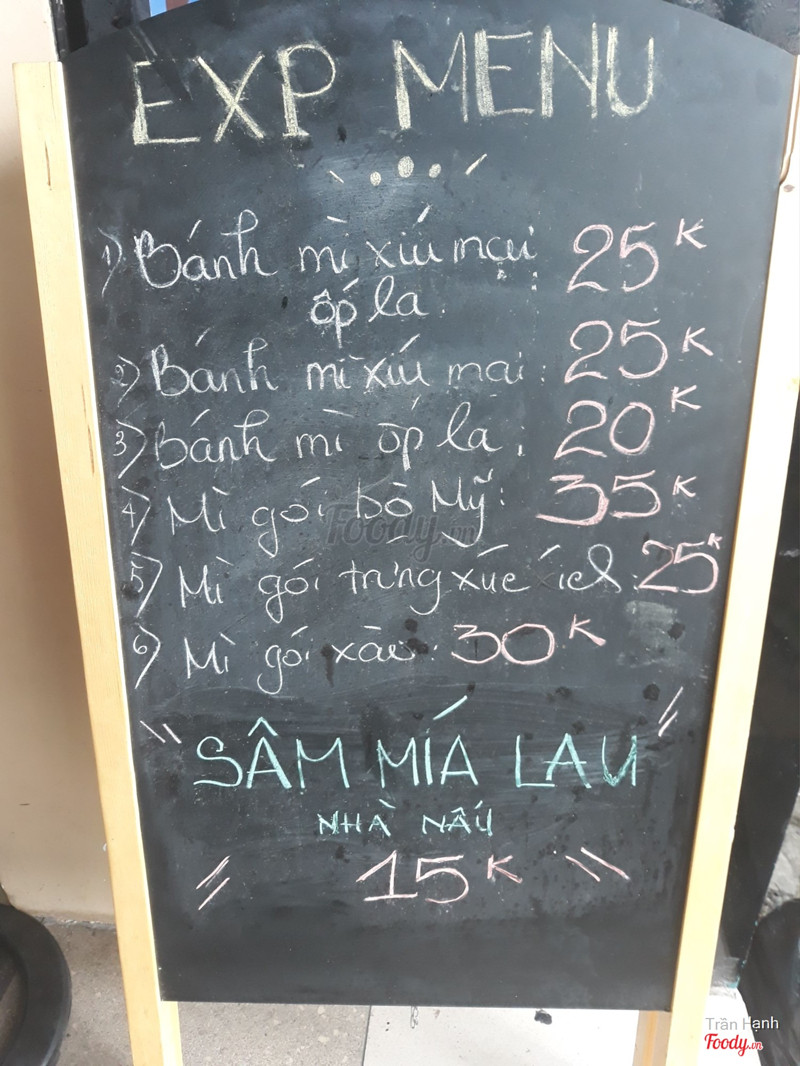 EXP MENU
1) Bánh mì xíu mại : 25K
ốp la
2) Bánh mì xíu mại : 25K
3) Bánh mì ốp la : 20K
4) Mì gói bò Mỹ : 35K
5) Mì gói trứng xúc xích : 25K
6) Mì gói xào : 30K
SÂM MÍA LAU
NHÀ NẤU
15K
Foody.vn
Trần Hạnh
Foody.vn